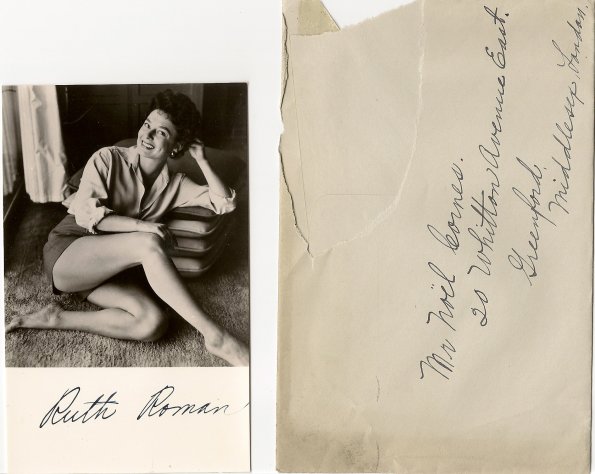 Ruth Roman
Mr Noël Cornes.
20 Whitton Avenue East.
Greenford,
Middlesex, London.